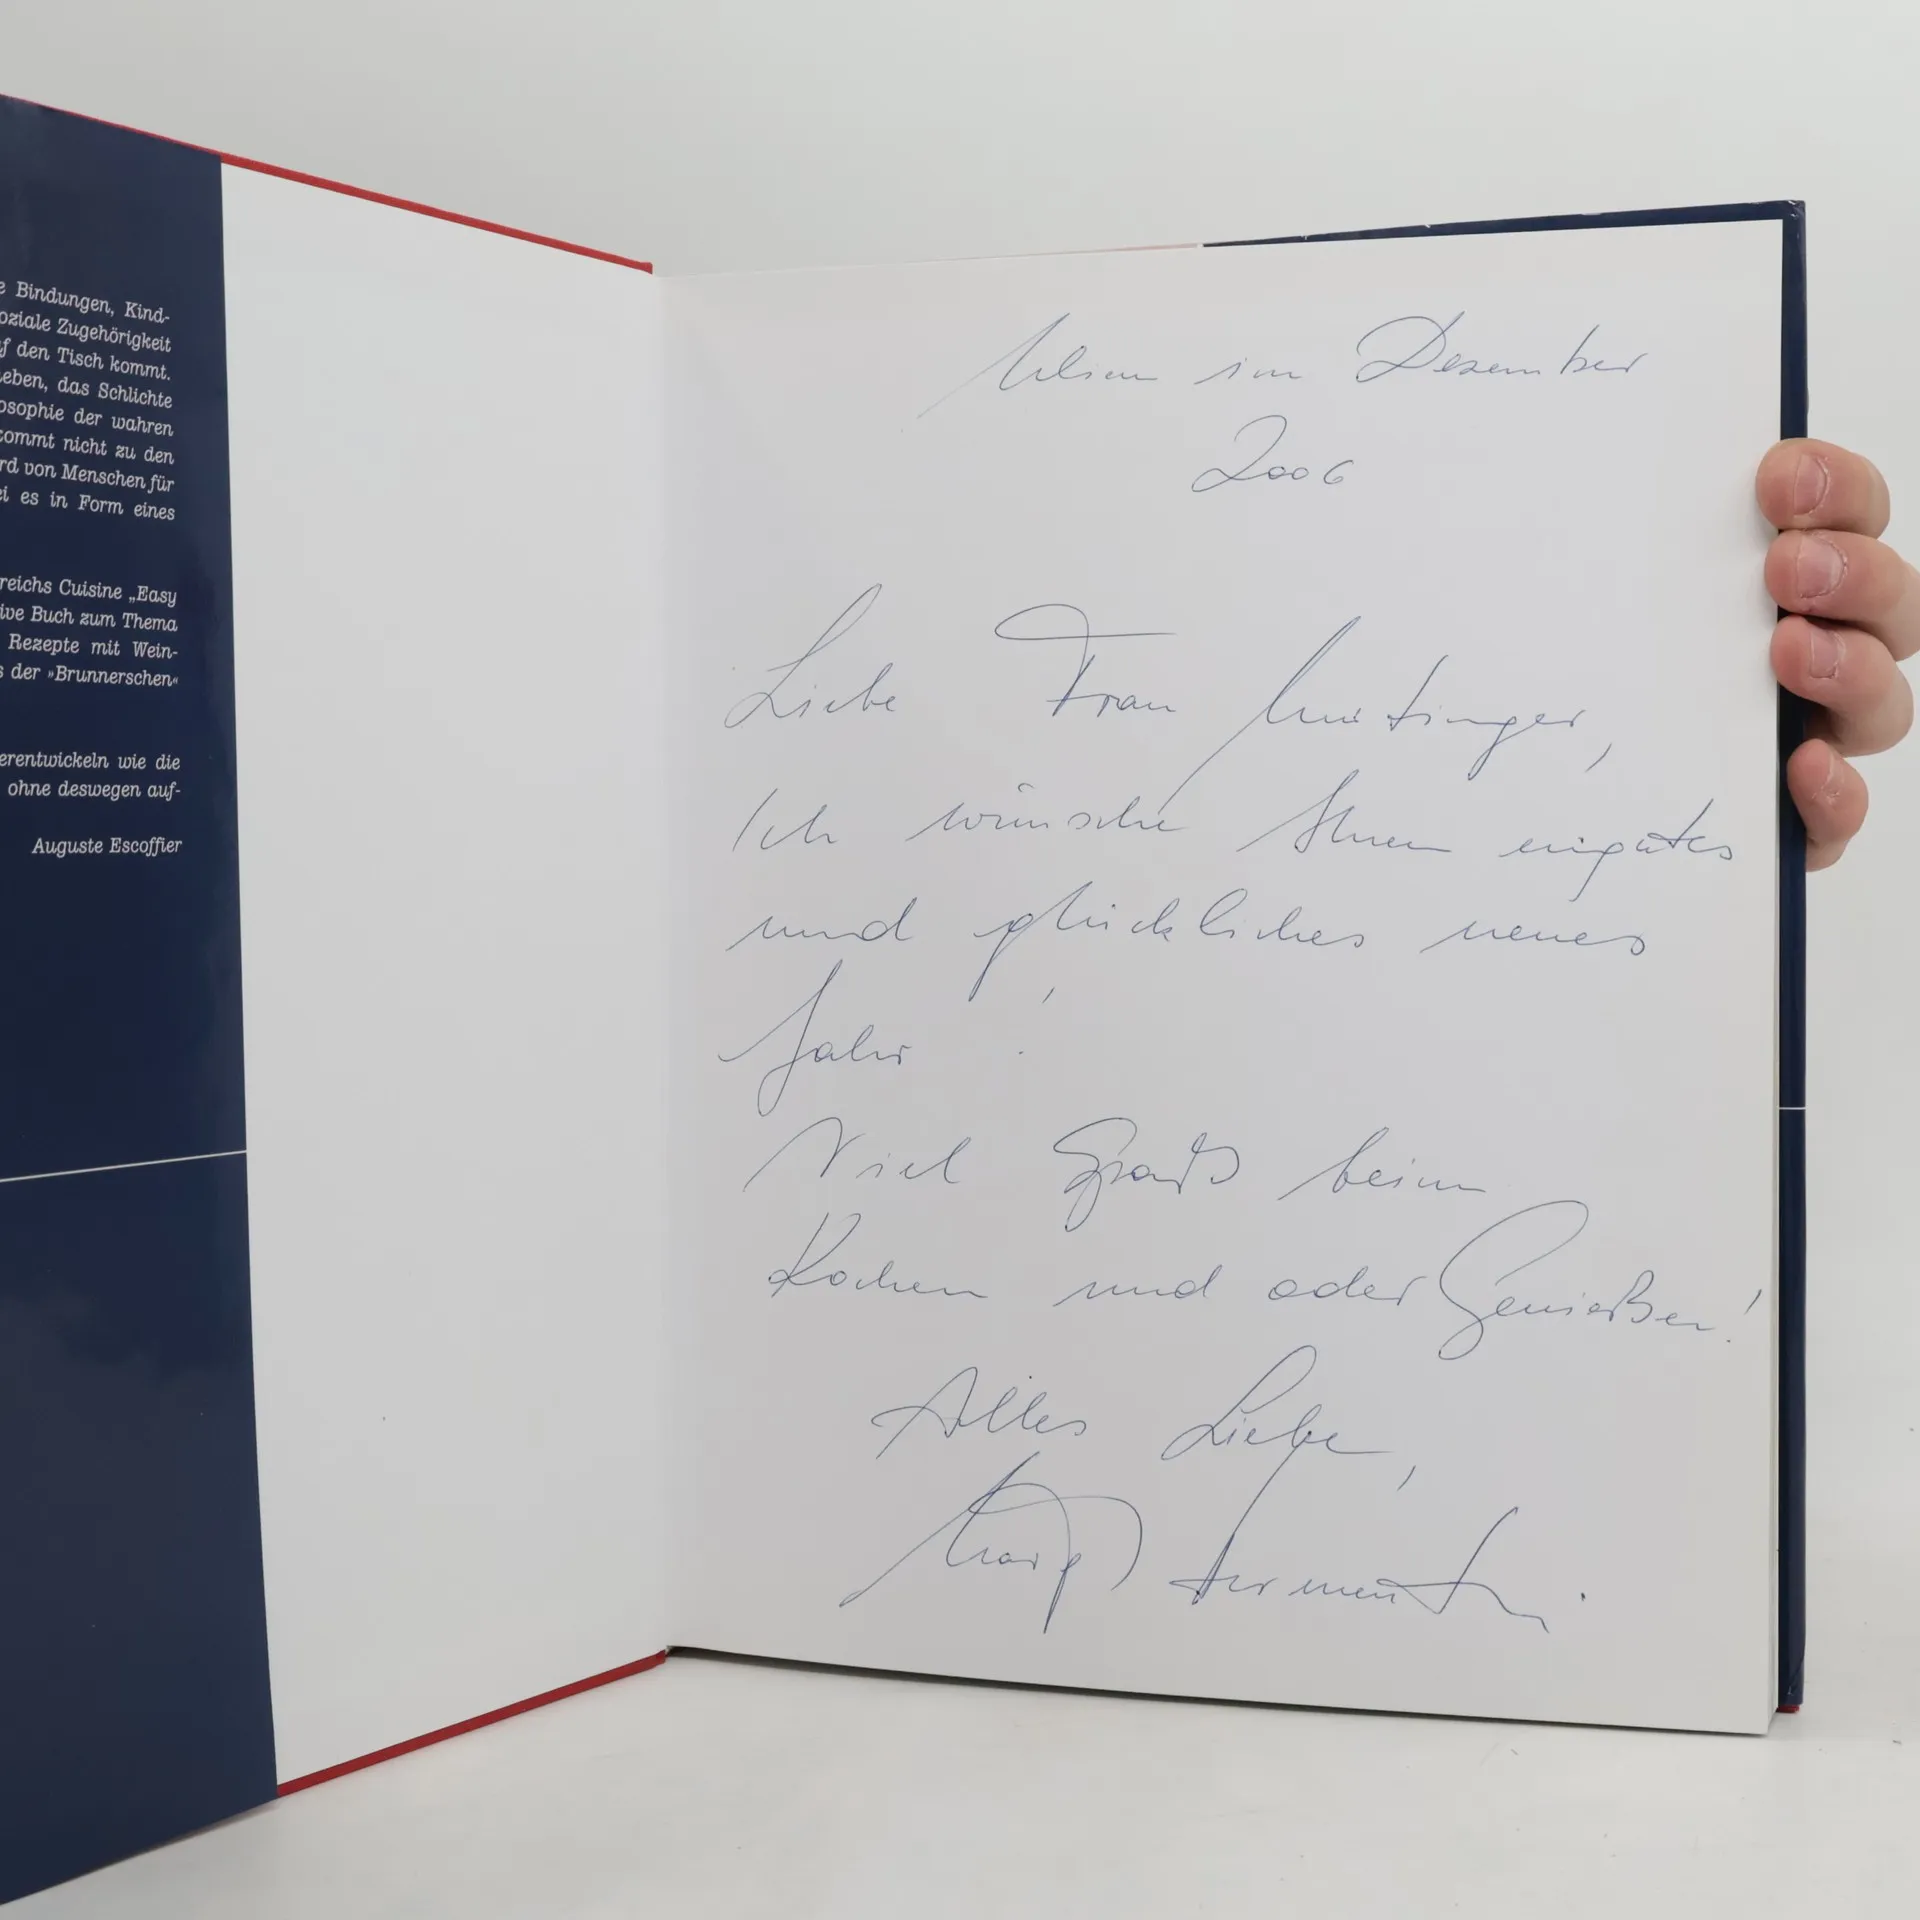 e Bindungen, Kind-
oziale Zugehörigkeit
f den Tisch kommt.
eben, das Schlichte
osophie der wahren
kommt nicht zu den
rd von Menschen für
ei es in Form eines
reichs Cuisine „Easy
ive Buch zum Thema
Rezepte mit Wein-
s der »Brunnerschen«
erentwickeln wie die
ohne deswegen auf-
Auguste Escoffier
Wien im Dezember
2006
Liebe Frau
Ich wünsche Ihnen ein gutes
und glückliches neues
Jahr!
Viel Spaß beim
Kochen und oder Genießen!
Alles Liebe,